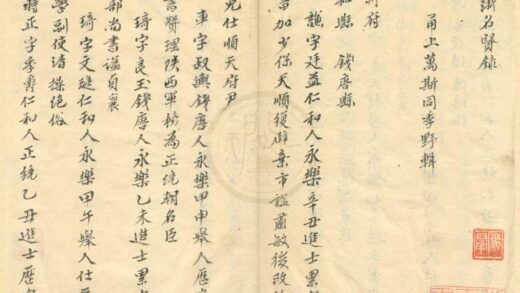 名賢錄
甬上萬斯同季野輯
府
和縣 錢唐縣
謙字廷益仁和人永樂辛丑進士累
加少保天順復辟棄市諡肅敏後改
兄仕順天府尹
車字叔輿錢唐人永樂甲申舉人歷
書贊理陝西軍務為正統朝名臣
琦字良玉錢唐人永樂乙未進士累
部尚書諡貞襄
琦字文璡仁和人永樂甲午舉人仕至
學副使清操絕俗
蔣正字季爵仁和人正統乙丑進士歷官